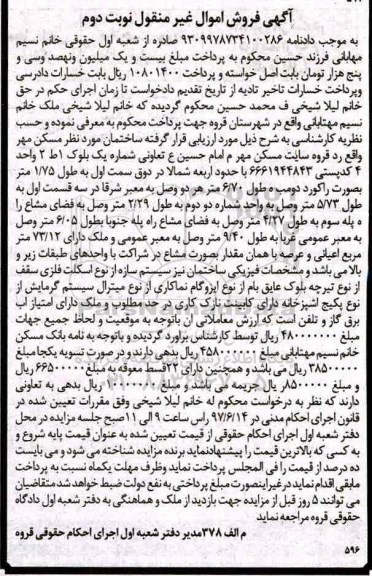 آگهی فروش اموال غیر منقول نوبت دوم
به موجب دادنامه ۹۳۰۹۹۷۸۷۳۴۱۰۰۲۸۶ صادره از شعبه اول حقوقی خانم نسیم
مهبابی فرزند حسین محکوم به پرداخت مبلغ بیست و یک میلیون ونهصد وسی و
پنج هزار تومان بابت اصل خواسته و پرداخت ۱۰۸۰۱۴۰۰ ریال بابت خسارات دادرسی
وپرداخت خسارات تاخیر تادیه از تاریخ تقدیم دادخواست تا زمان اجرای حکم در حق
خانم لیلا شیخی ف محمد حسین محکوم گردیده که خانم لیلا شیخی ملک خانم
نسیم مهتابانی واقع در شهرستان قروه جهت پرداخت محکوم به معرفی نموده و حسب
نظریه کارشناسی به شرح ذیل مورد ارزیابی قرار گرفته ساختمان مورد نظر مسکن مهر
واقع رد قروه سایت مسکن مهر م امام حسین ع تعاونی شماره یک بلوک ۱ط ۲ واحد
۴ کدپستی ۶۶۶۱۹۴۴۸۴۳ با حدود اربعه شمالا در دوق سمت اول به طول ۱/۷۵ متر
بصورت راکورد دومب ه طول ۶/۷۰ متر هر دو وصل به معبر شرقا در سه قسمت اول به
طول ۵/۷۳ متر وصل به واحد شماره دو دوم به طول ۲/۲۹ متر وصل به فضای مشاع را
ه پله سوم به طول ۴/۲۷ متر وصل به فضای مشاع راه پله جنوبا بطول ۶/۰۵ متر وصل
به معبر عمومی غربا به طول ۹/۴۰ متر وصل به معبر عمومی و ملک دارای ۷۳/۱۲ متر
مربع اعیانی و عرصه با همان مقدار بصورت مشاع در شراکت با واحدهای طبقات زیر و
بالا می باشد و مشخصات فیزیکی ساختمان نیز سیستم سازه از نوع اسکلت فلزی سقف
از نوع تیرچه بلوک عایق بام از نوع ایزوگام نماکاری از نوع مینرال سیستم گرمایش از
نوع پکیج اشپزخانه دارای کابینت نازک کاری در حد مطلوب و ملک دارای امتیاز اب
برق گاز و تلفن است که ارزش معاملاتی ان باتوجه به موقعیت و لحاظ جمیع جهات
مبلغ ۴۸۰۰۰۰۰۰۰ ریال توسط کارشناس براورد گردیده و باتوجه به نامه بانک مسکن
خانم نسیم مهتابانی مبلغ ۴۵۸۰۰۰۰۰۰ ریال بدهی دارند و در صورت تسویه یکجا مبلغ
۳۸۵۰۰۰۰۰۰ ریال می باشد و همچنین دارای ۲۲قسط معوقه به مبلغ ۶۶۵۰۰۰۰۰ ریال
و مبلغ ۸۵۰۰۰۰۰ ریال جریمه می باشد و مبلغ ریال بدهی به تعاونی
دارند که نظر به درخواست محکوم له خانم لیلا شیخی وفق مقررات تعیین شده در
قانون اجرای احکام مدنی در ۹۷/۶/۱۴ راس ساعت ۹ الی ۱۱صبح جلسه مزایده در محل
دفتر شعبه اول اجرای احکام حقوقی از قیمت تعیین شده به عنوان قیمت پایه شروع و
به کسی که بالاترین قیمت را پیشنهادنماید برنده مزایده شناخته می شود و می بایست
ده درصد از قیمت را فی المجلس پرداخت نماید وظرف مهلت یکماه نسبت به پرداخت
مابقی اقدام نماید در غیراینصورت مبلغ پرداختی به نفع دولت ضبط خواهد شد متقاضیان
می توانند ۵ روز قبل از مزایده جهت بازدید از ملک و هماهنگی به دفتر شعبه اول دادگاه
حقوقی قروه مراجعه نماید
م الف ۳۷۸مدیر دفتر شعبه اول اجرای احکام حقوقی قروه
۵۹۶